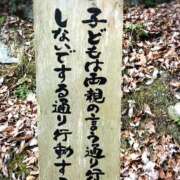 子どもは両親の言う通り行
しないでする通り行動す